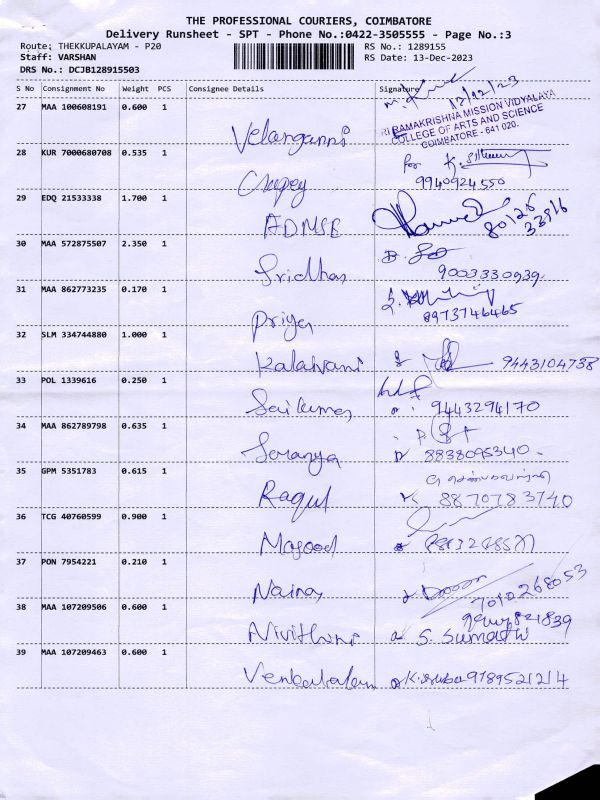 THE PROFESSIONAL COURIERS, COIMBATORE
Delivery Runsheet - SPT - Phone No.:0422-3505555 - Page No.:3
Route: THEKKUPALAYAM - P20
RS No.: 1289155
Staff: VARSHAN
RS Date: 13-Dec-2023
DRS No.: DCJB128915503
S No Consignment No Weight PCS Consignee Details Signature
27 MAA 100608191 0.600 1
13/12/23
RI RAMAKRISHNA MISSION VIDYALAYA
COLLEGE OF ARTS AND SCIENCE
COIMBATORE - 641 020.
Velanganni
28 KUR 7000680708 0.535 1
for
9940924550
29 EDQ 21533338 1.700 1
ADMSE
80126
33916
30 MAA 572875507 2.350 1
Sridhar
9003330939
31 MAA 862773235 0.170 1
Priya
8973746465
32 SLM 334744880 1.000 1
Kalaivani
9443104738
33 POL 1339616 0.250 1
Saikumar
9443294170
34 MAA 862789798 0.635 1
Saranya
8838095340
35 GPM 5351783 0.615 1
Ragul
8870783740
36 TCG 40760599 0.900 1
Masood
37 PON 7954221 0.210 1
7010268053
38 MAA 107209506 0.600 1
Nivithini S. Sumathi
39 MAA 107209463 0.600 1
Venkatalam K. Suba 9789521214